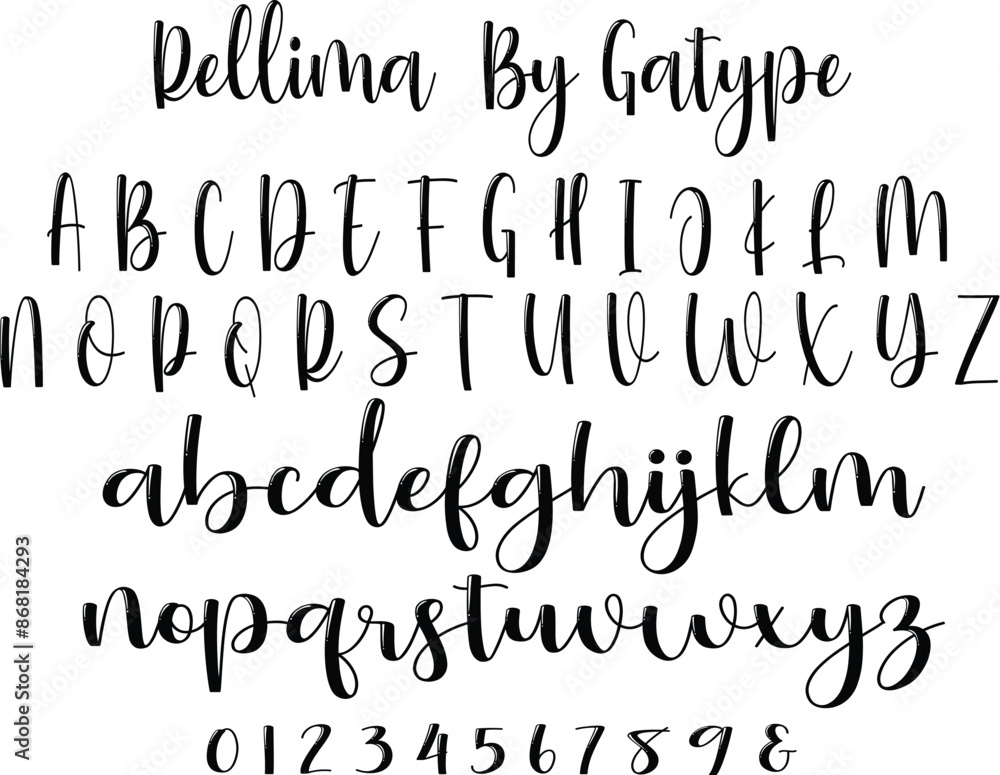 Rellima By Gatype
A B C D E F G H I J K L M
N O P Q R S T U V W X Y Z
abcdefghijklm
nopqrstuvwxyz
0 1 2 3 4 5 6 7 8 9 &
Adobe Stock | #868184293